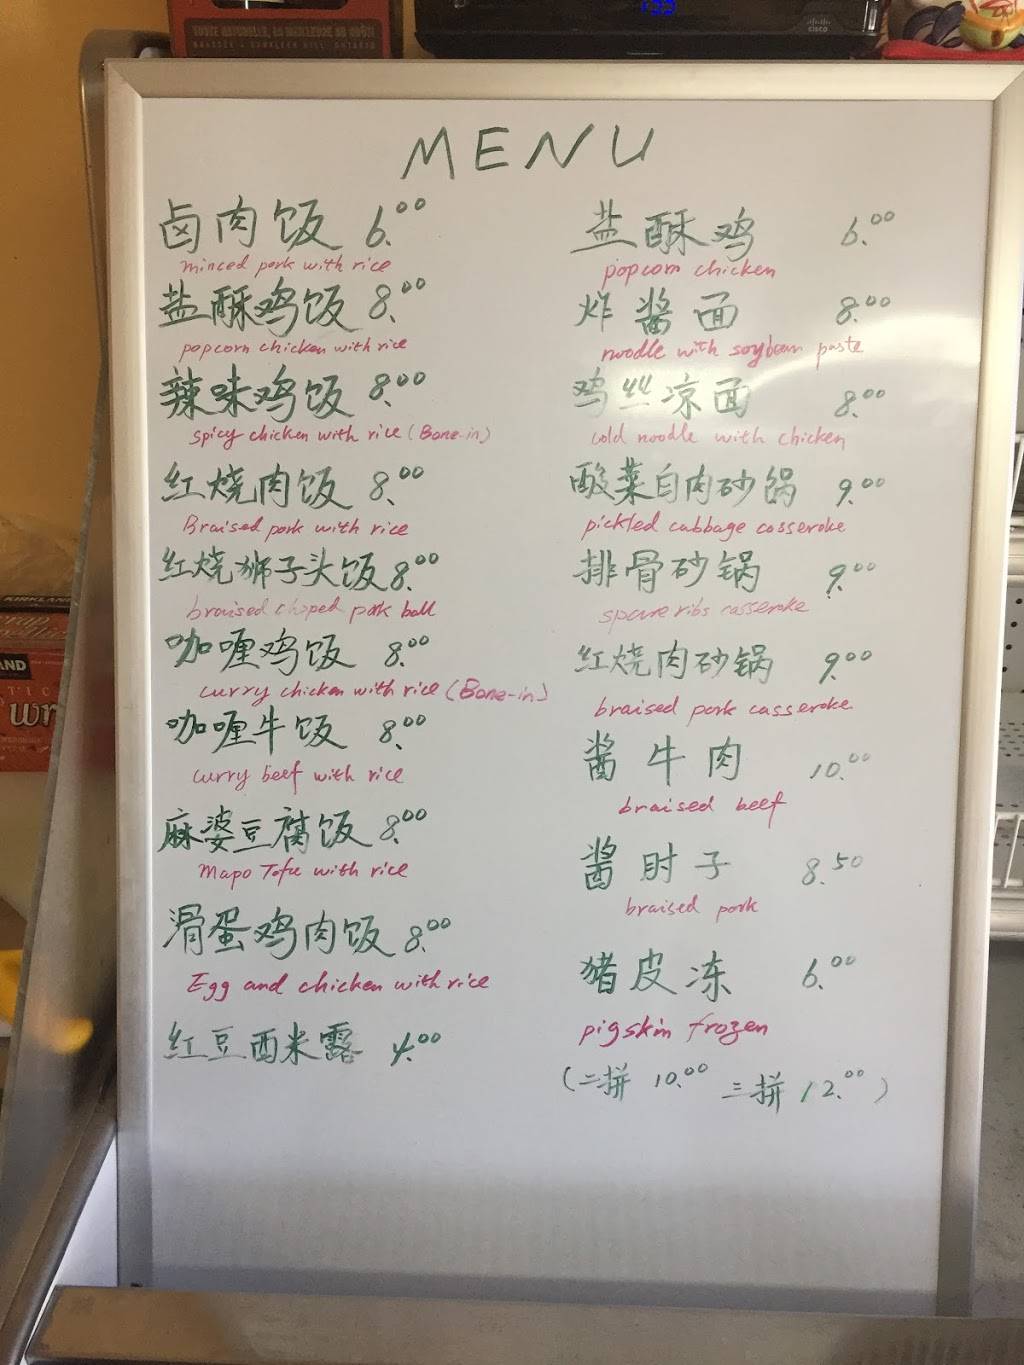 TOUTE NATURELLE, LA MEILLEURE AU GOÛT!
cisco
MENU
卤肉饭 6.00
minced pork with rice
盐酥鸡饭 8.00
popcorn chicken with rice
辣味鸡饭 8.00
spicy chicken with rice (Bone-in)
红烧肉饭 8.00
Braised pork with rice
红烧狮子头饭 8.00
braised choped pork ball
咖喱鸡饭 8.00
curry chicken with rice (Bone-in)
咖喱牛饭 8.00
curry beef with rice
麻婆豆腐饭 8.00
Mapo Tofu with rice
滑蛋鸡肉饭 8.00
Egg and chicken with rice
红豆西米露 4.00
盐酥鸡 6.00
popcorn chicken
炸酱面 8.00
noodle with soybean paste
鸡丝凉面 8.00
cold noodle with chicken
酸菜白肉砂锅 9.00
pickled cabbage casseroke
排骨砂锅 9.00
spare ribs casseroke
红烧肉砂锅 9.00
braised pork casseroke
酱牛肉 10.00
braised beef
酱肘子 8.50
braised pork
猪皮冻 6.00
pigskin frozen
(二拼 10.00 三拼 12.00)
KIRKLAND